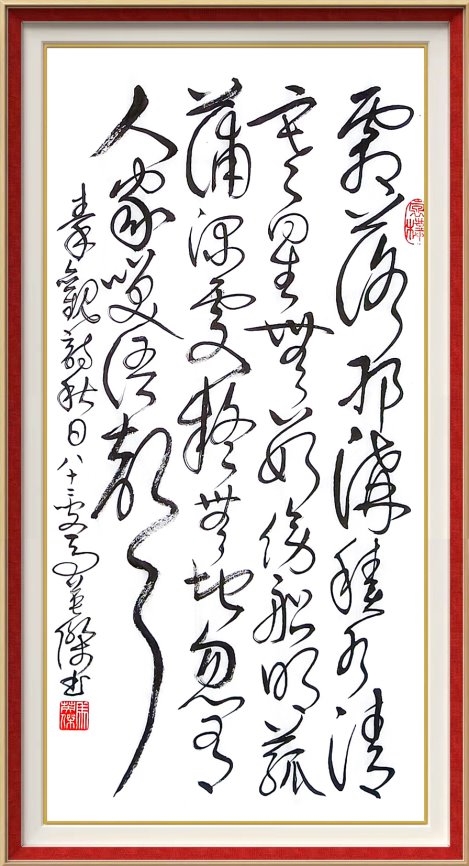 霜落邗溝積水清
寒星無數傍船明菰
蒲深處疑無地忽有
人家笑語聲
秦觀詩秋日八十二叟馬英傑書
馬英傑